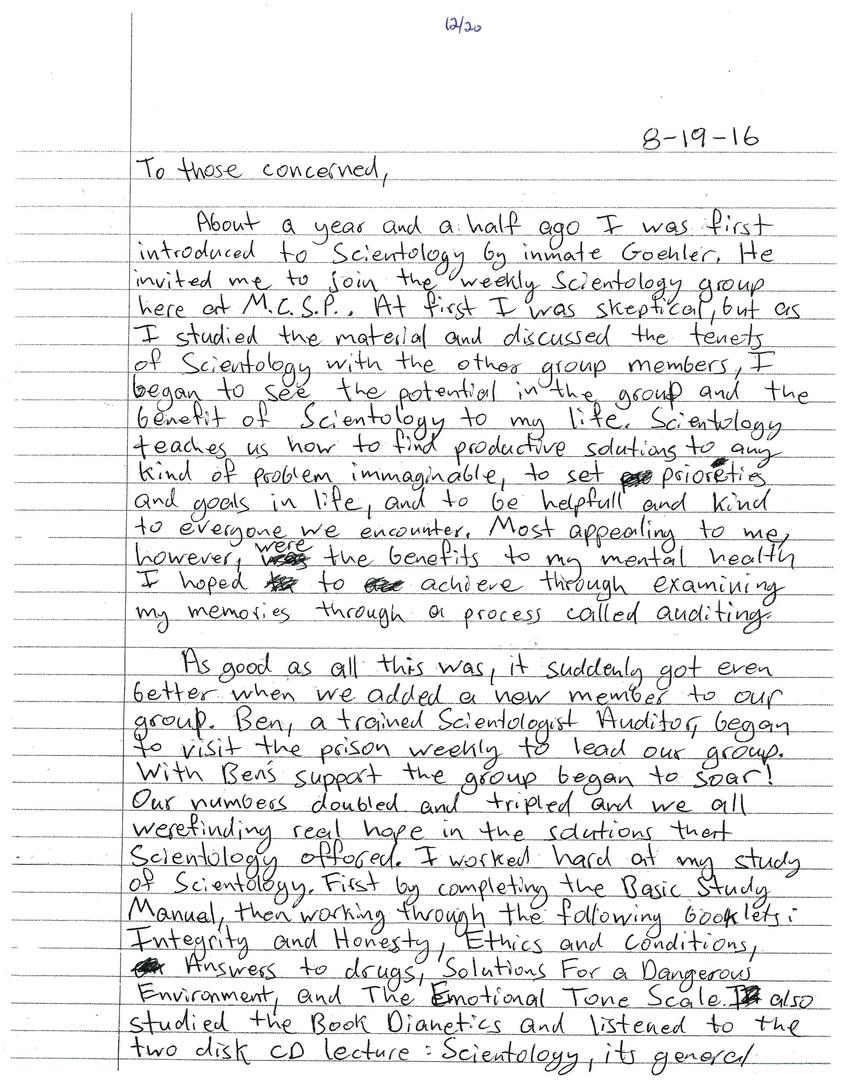 12/20
8-19-16
To those concerned,
About a year and a half ago I was first
introduced to Scientology by inmate Goehler. He
invited me to join the weekly Scientology group
here at M.C.S.P.. At first I was skeptical, but as
I studied the material and discussed the tenets
of Scientology with the other group members, I
began to see the potential in the group and the
benefit of Scientology to my life. Scientology
teaches us how to find productive solutions to any
kind of problem immaginable, to set prioreties
and goals in life, and to be helpfull and kind
to everyone we encounter. Most appealing to me,
however, were the benefits to my mental health
I hoped to achieve through examining
my memories through a process called auditing.
As good as all this was, it suddenly got even
better when we added a new member to our
group. Ben, a trained Scientologist Auditor, began
to visit the prison weekly to lead our group.
With Ben's support the group began to soar!
Our numbers doubled and tripled and we all
werefinding real hope in the solutions that
Scientology offored. I worked hard at my study
of Scientology. First by completing the Basic Study
Manual, then working through the following booklets:
Integrity and Honesty, Ethics and Conditions,
Answers to drugs, Solutions For a Dangerous
Environment, and The Emotional Tone Scale. I also
studied the Book Dianetics and listened to the
two disk CD lecture: Scientology, its general